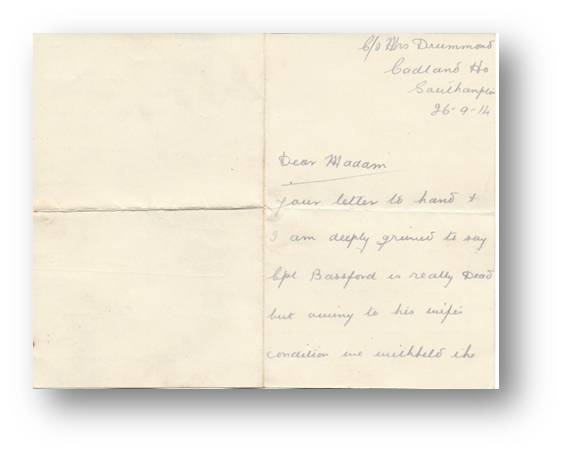 C/o Mrs Drummond
Cadland Ho
Southampton
26-9-14
Dear Madam
your letter to hand &
I am deeply grieved to say
Cpl Bassford is really Dead
but owing to his wife's
condition we withheld the